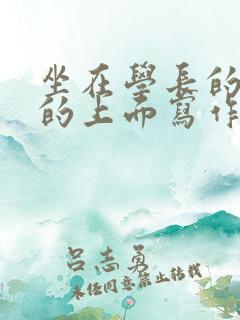 坐在學長的
的上面寫作
呂志勇
未经同意禁止转载